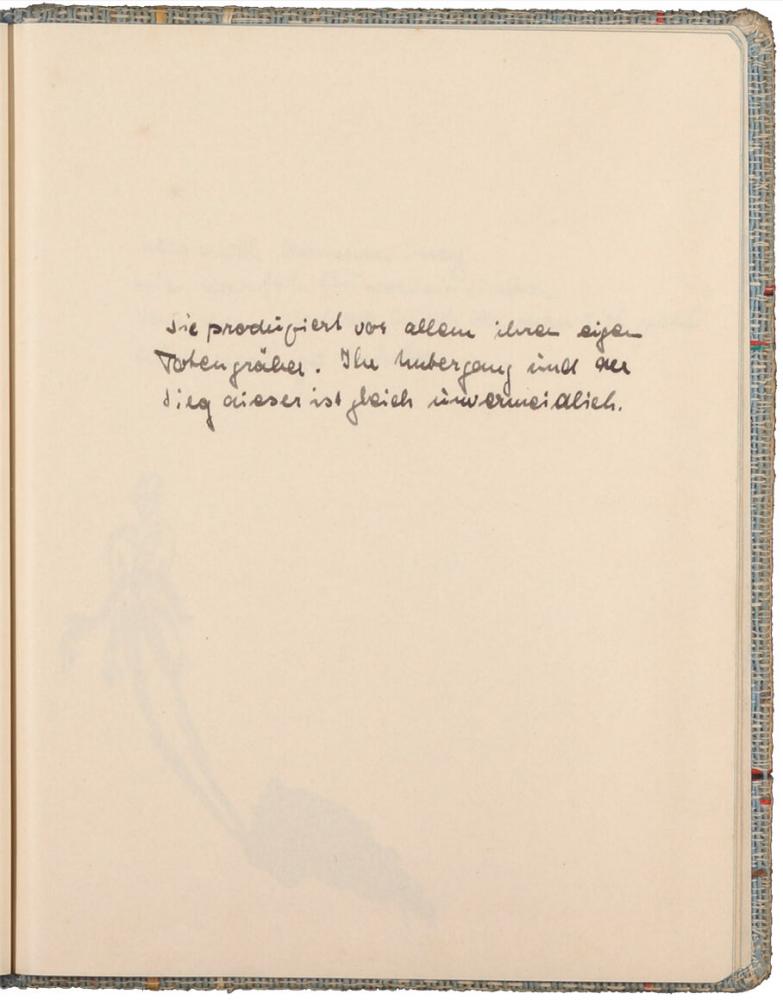 Sie produziert vor allem ihren eigen
Totengräber. Ihr Untergang und der
Sieg dieser ist gleich unvermeidlich.